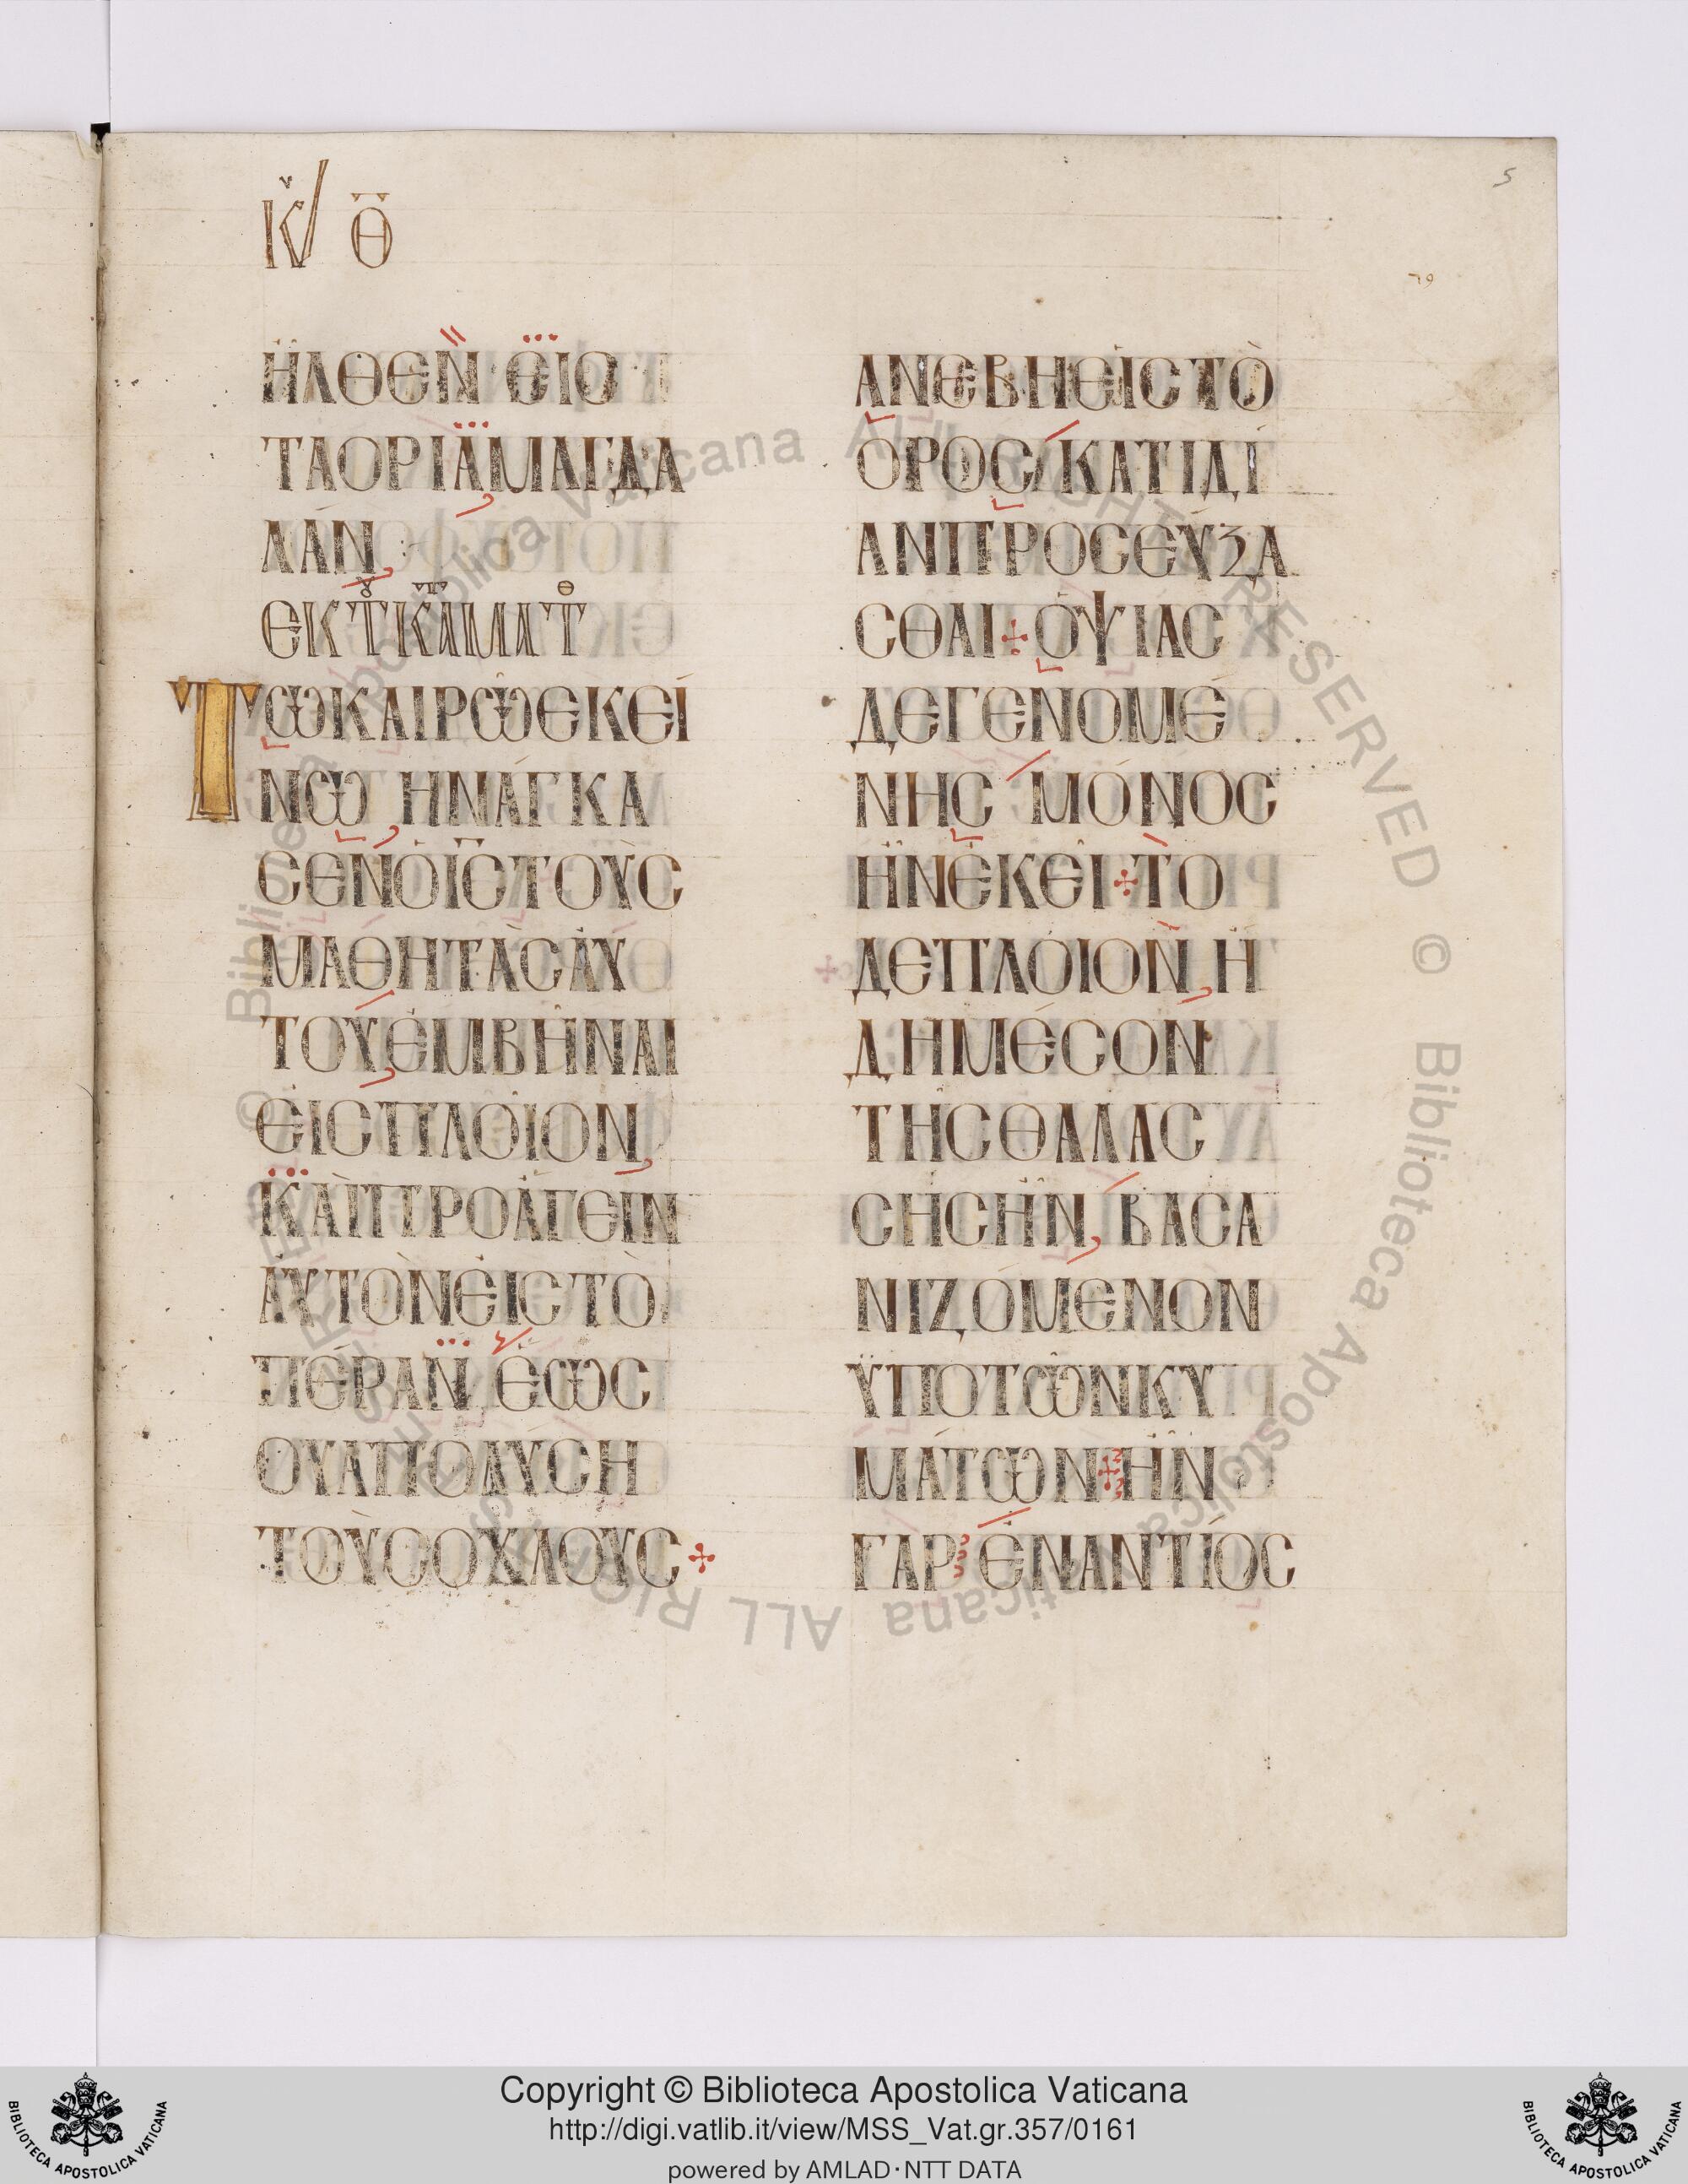 Κυ Θ
5
ἮΛΘΕΝ ΕΙΟ
ΤΑΟΡΙΑΜΑΓΔΑ
ΛΑΝ
ΕΚ Τ ΚΑΤΑ ΜΑΤΘ
ΤΩΚΑΙΡΩΕΚΕΙ
ΝΩ ΗΝΑΓΚΑ
ΣΕΝΟΙΣΤΟΥΣ
ΜΑΘΗΤΑΣΑΥ
ΤΟΥΕΜΒΗΝΑΙ
ΕΙΣΠΛΟΙΟΝ
ΚΑΙΠΡΟΑΓΕΙΝ
ΑΥΤΟΝΕΙΣΤΟ
ΠΕΡΑΝ ΕΩΣ
ΟΥΑΠΟΛΥΣΗ
ΤΟΥΣΟΧΛΟΥΣ
ΑΝΕΒΗΕΙΣΤΟ
ΟΡΟΣ ΚΑΤΙΔΙ
ΑΝΠΡΟΣΕΥΞΑ
ΣΘΑΙ ΟΨΙΑΣ
ΔΕΓΕΝΟΜΕ
ΝΗΣ ΜΟΝΟΣ
ΗΝΕΚΕΙ ΤΟ
ΔΕΠΛΟΙΟΝ Η
ΔΗΜΕΣΟΝ
ΤΗΣΘΑΛΑΣ
ΣΗΣΗΝ ΒΑΣΑ
ΝΙΖΟΜΕΝΟΝ
ΫΠΟΤΩΝΚΥ
ΜΑΤΩΝ ΗΝ
ΓΑΡ ΕΝΑΝΤΙΟΣ
© Biblioteca Apostolica Vaticana ALL RIGHTS RESERVED © Biblioteca Apostolica Vaticana ALL RIGHTS RESERVED
Copyright © Biblioteca Apostolica Vaticana
http://digi.vatlib.it/view/MSS_Vat.gr.357/0161
powered by AMLAD·NTT DATA
BIBLIOTECA APOSTOLICA VATICANA
BIBLIOTECA APOSTOLICA VATICANA